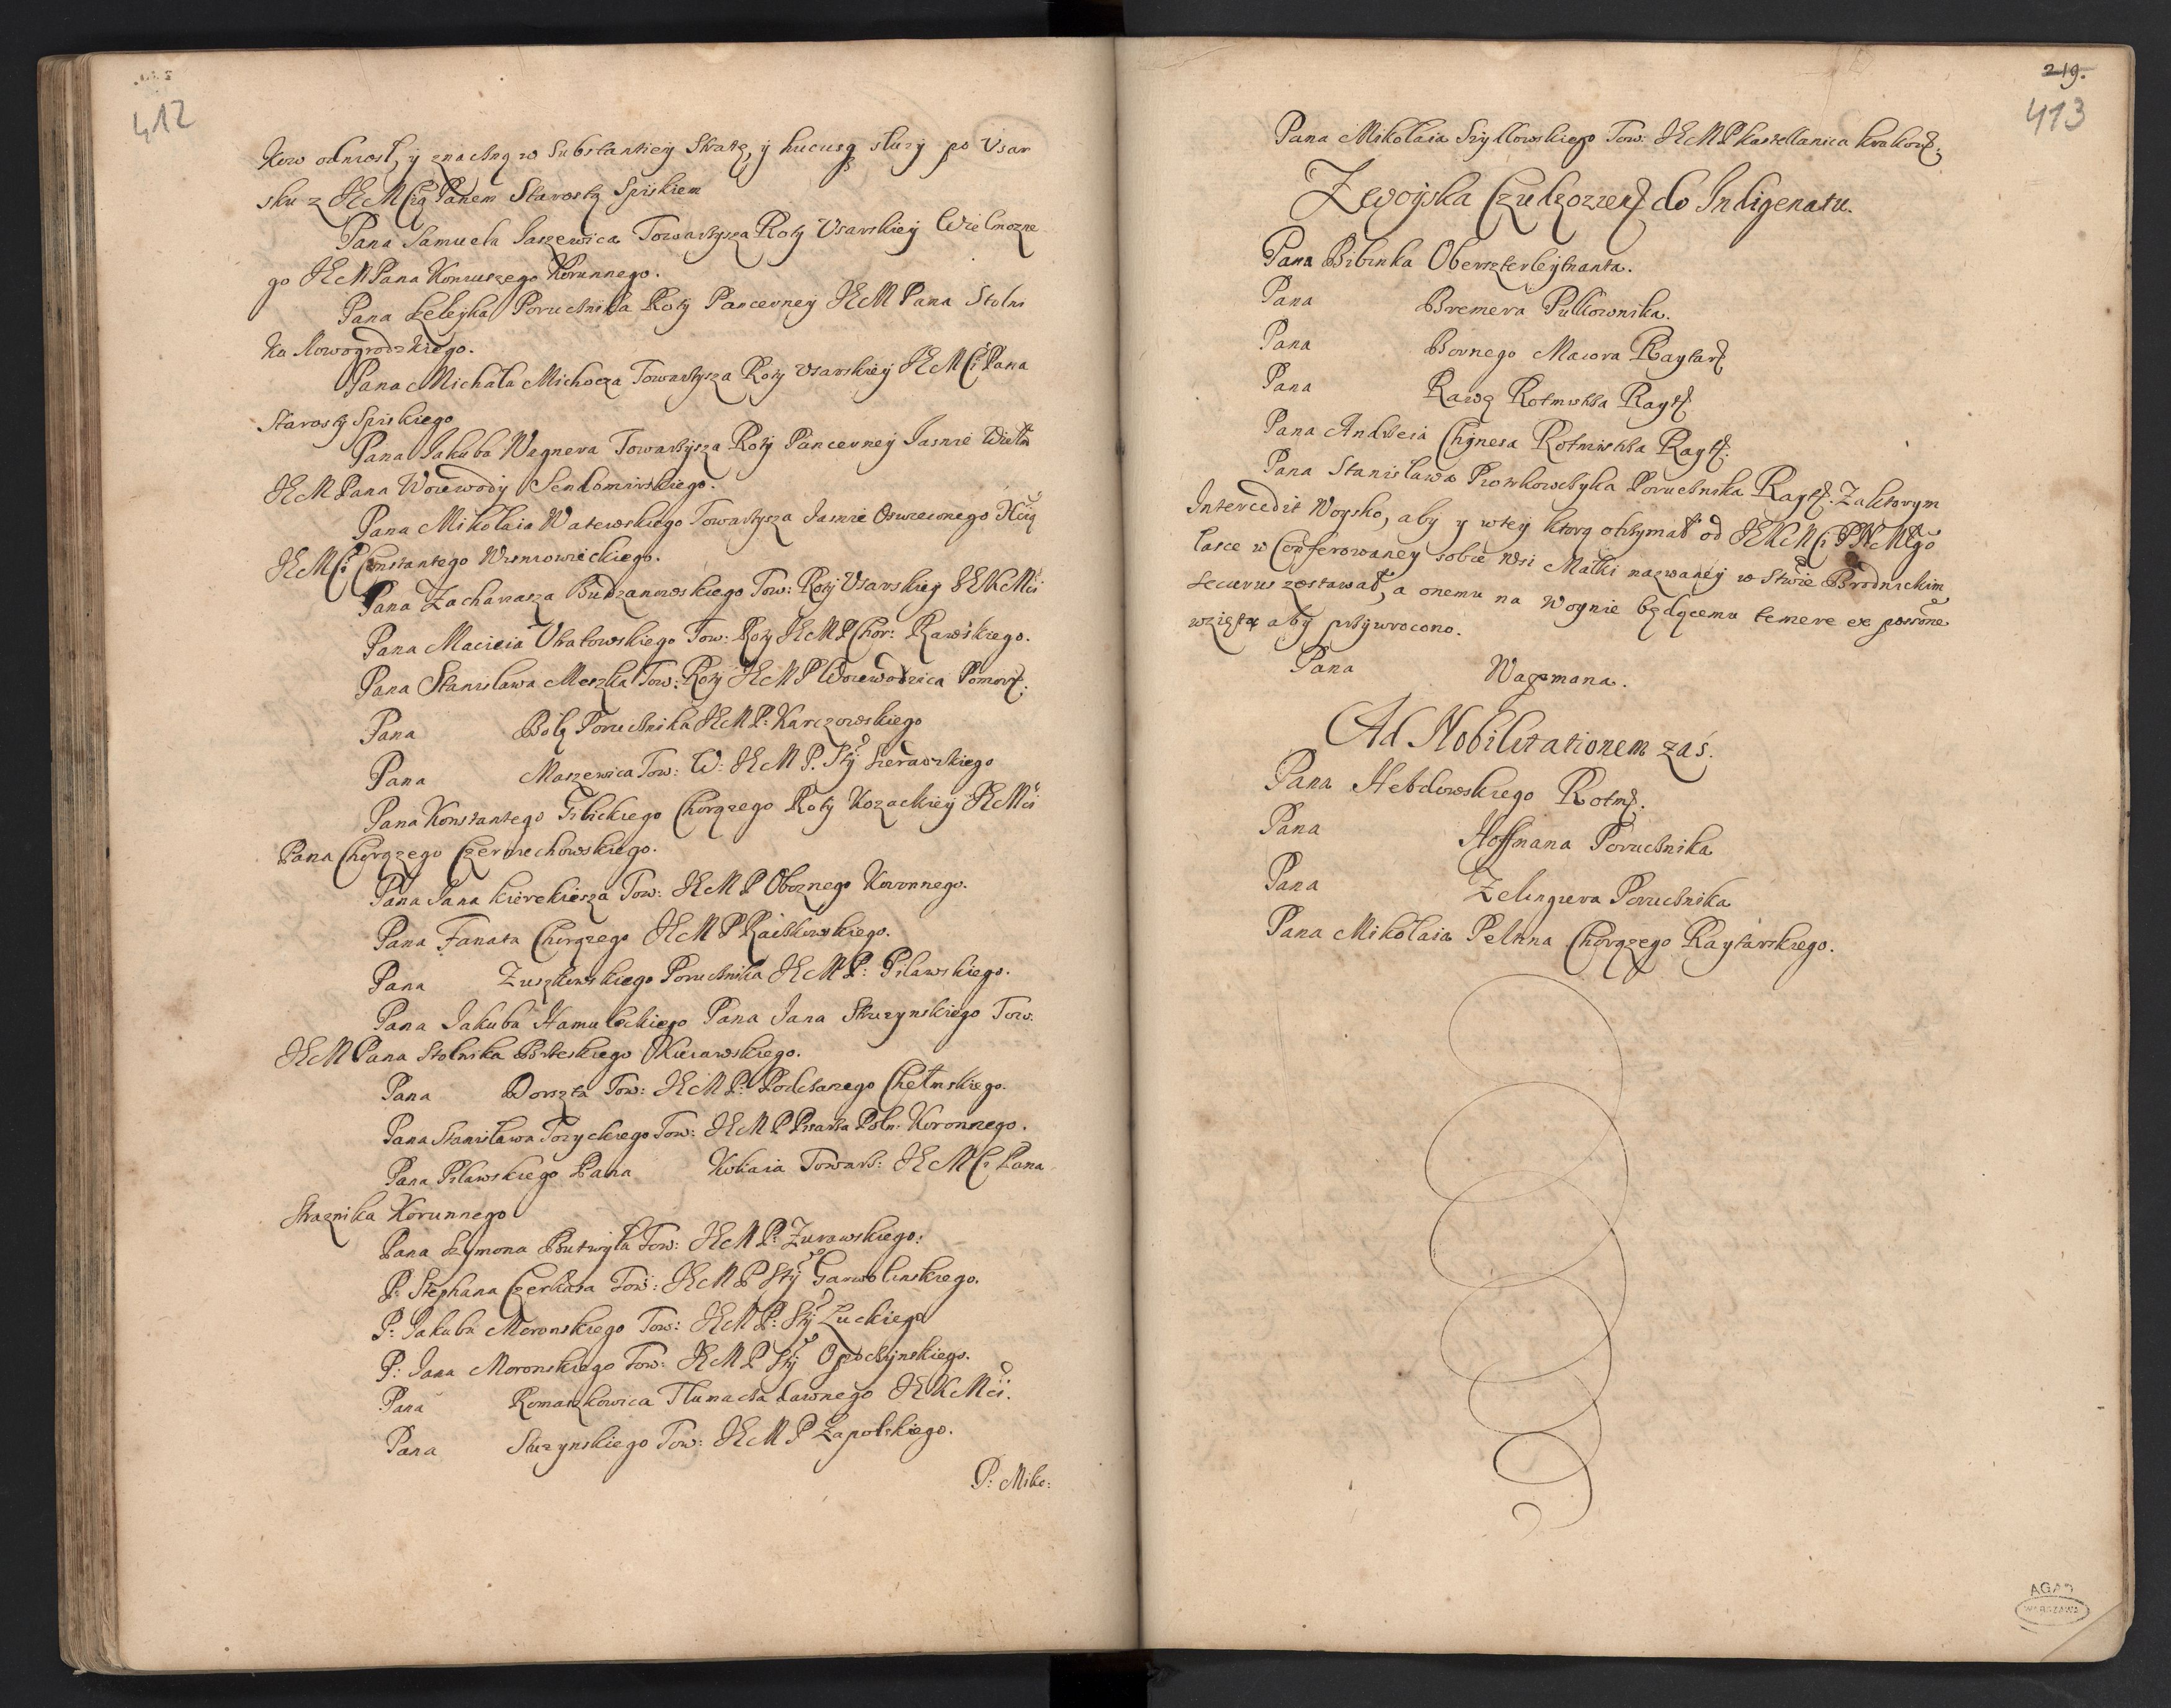 412
kow odniosł, y znaczną w Substantiey Stratę, y hucusq służy po Usar
sku z JEMCią Panem Starostą Spiskiem
Pana Samuela Jaszewica Towarzysza Roty Usarskiey Wielmozne
go JEM Pana Koniuszego Koronnego.
Pana Leleyka Porucznika Roty Pancerney JEM Pana Stolni
ka Nowogrodzkiego.
Pana Michała Michocza Towarzysza Roty Usarskiey JEMCi Pana
Starosty Spiskiego
Pana Jakuba Wagnera Towarzysza Roty Pancerney Jasnie Wielm
JEM Pana Woiewody Sendomirskiego.
Pana Mikołaia Watewskiego Towarzysza Jasnie Oswieconego Xcią
JEMCi Constantego Wisniowieckiego.
Pana Zachariasza Budzanowskiego Tow: Roty Usarskiey JEKMci
Pana Macieia Ubatowskiego Tow: Roty JEMP Chor: Rawskiego.
Pana Stanisława Meszka Tow: Roty JEMP Woiewodzica Pomors:
Pana Bolę Porucznika JEMP: Karczowskiego
Pana Maszewica Tow: W: JEMP. Sty Sieradzkiego
Pana Konstantego Glickiego Chorązego Roty Kozackiey JEMci
Pana Chorązego Czerniechowskiego.
Pana Jana Kierekiesza Tow: JEMP Oboznego Koronnego.
Pana Fanata Chorązego JEMP Raczkowskiego.
Pana Zuszkowskiego Porucznika JEMP: Pilawskiego.
Pana Jakuba Hamuleckiego Pana Jana Struzynskiego Tow:
JEM Pana Stolnika Brzeskiego Kuiawskiego.
Pana Dorszta Tow: JEMP: Podczaszego Chełmskiego.
Pana Stanisława Tozyckiego Tow: JEMP Pisarza Poln: Koronnego.
Pana Pilawskiego Pana Kokaia Towarz: JEMCi Pana
Straznika Koronnego
Pana Szymona Butwiyła Tow: JEMP: Zurawskiego:
P: Stephana Czerkasa Tow: JEMP Sty Garwolinskiego.
P: Jakuba Moronskiego Tow: JEMP: Sty Łuckiego
P: Jana Moronskiego Tow: JEMP Sty Opoczynskiego.
Pana Romaszkowica Tłumacza dawnego JEKMci.
Pana Sluzynskiego Tow: JEMP Zapolskiego.
P: Miko:
219.
413
Pana Mikołaia Szydłowskiego Tow: JEMP Kasztellanica Krakows:
Z woyska Czudzoziems: do Indigenatu.
Pana Bibinka Oberszterleytnanta.
Pana Bremera Pułkownika.
Pana Bornego Maiora Raytars
Pana Rawę Rotmistrza Rayt:
Pana Andrzeia Chynesa Rotmistrza Rayt:
Pana Stanisława Piorkowczyka Porucznika Rayt: Za ktorym
Intercedit Woysko, aby y w tey ktorą otrzymał od JEKMCi PNMgo
łasce w Conferowaney sobie Wsi Małki nazwaney w Stwie Brodnickim
securus zostawał, a onemu na Woynie będącemu temere ex possone
wzięta aby przywrocono.
Pana Wagmana.
Ad Nobilitationem zaś.
Pana Hebdowskiego Rotm:
Pana Hoffmana Porucznika
Pana Zelingiera Porucznika
Pana Mikołaia Pelkna Chorązego Raytarskiego.
AGAD
WARSZAWA